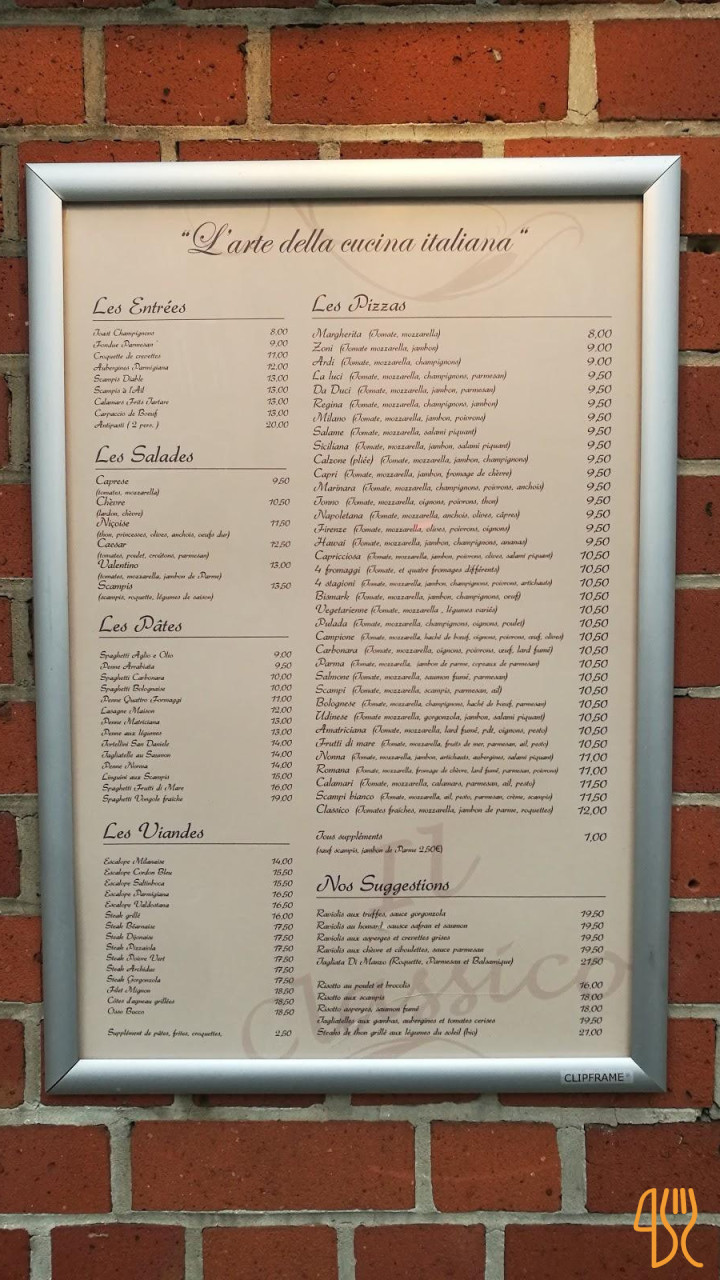 "L'arte della cucina italiana"
Les Entrées
Toast Champignons 8,00
Fondue Parmesan 9,00
Croquette de crevettes 11,00
Aubergines Parmigiana 12,00
Scampis Diable 13,00
Scampis à l'Ail 13,00
Calamars Frits Tartare 13,00
Carpaccio de Boeuf 13,00
Antipasti ( 2 pers. ) 20,00
Les Salades
Caprese 9,50
(tomates, mozzarella)
Chèvre 10,50
(lardon, chèvre)
Niçoise 11,50
(thon, princesses, olives, anchois, oeufs dur)
Caesar 12,50
(tomates, poulet, croûtons, parmesan)
Valentino 13,00
(tomates, mozzarella, jambon de Parme)
Scampis 13,50
(scampis, roquette, légumes de saison)
Les Pâtes
Spaghetti Aglio e Olio 9,00
Penne Arrabiata 9,50
Spaghetti Carbonara 10,00
Spaghetti Bolognaise 10,00
Penne Quattro Formaggi 11,00
Lasagne Maison 12,00
Penne Matriciana 13,00
Penne aux légumes 13,00
Tortellini San Daniele 14,00
Tagliatelle au Saumon 14,00
Penne Norma 14,00
Linguini aux Scampis 15,00
Spaghetti Frutti di Mare 16,00
Spaghetti Vongole fraiche 19,00
Les Viandes
Escalope Milanaise 14,00
Escalope Cordon Bleu 15,50
Escalope Saltinboca 15,50
Escalope Parmigiana 16,50
Escalope Valdostana 16,50
Steak grillé 16,00
Steak Béarnaise 17,50
Steak Dijonaise 17,50
Steak Pizzaiola 17,50
Steak Poivre Vert 17,50
Steak Archiduc 17,50
Steak Gorgonzola 17,50
Filet Mignon 18,50
Côtes d'agneau grillées 18,50
Osso Bucco 18,50
Supplément de pâtes, frites, croquettes, 2,50
Les Pizzas
Margherita (Tomate, mozzarella) 8,00
Zoni (Tomate mozzarella, jambon) 9,00
Ardi (Tomate, mozzarella, champignons) 9,00
La luci (Tomate, mozzarella, champignons, parmesan) 9,50
Da Duci (Tomate, mozzarella, jambon, parmesan) 9,50
Regina (Tomate, mozzarella, champignons, jambon) 9,50
Milano (Tomate, mozzarella, jambon, poivrons) 9,50
Salame (Tomate, mozzarella, salami piquant) 9,50
Siciliana (Tomate, mozzarella, jambon, salami piquant) 9,50
Calzone (pliée) (Tomate, mozzarella, jambon, champignons) 9,50
Capri (Tomate, mozzarella, jambon, fromage de chèvre) 9,50
Marinara (Tomate, mozzarella, champignons, poivrons, anchois) 9,50
Tonno (Tomate, mozzarella, oignons, poivrons, thon) 9,50
Napoletana (Tomate, mozzarella, anchois, olives, câpres) 9,50
Firenze (Tomate, mozzarella, olives, poivrons, oignons) 9,50
Hawai (Tomate, mozzarella, jambon, champignons, ananas) 9,50
Capricciosa (Tomate, mozzarella, jambon, poivrons, olives, salami piquant) 10,50
4 fromaggi (Tomate, et quatre fromages différents) 10,50
4 stagioni (Tomate, mozzarella, jambon, champignons, poivrons, artichauts) 10,50
Bismark (Tomate, mozzarella, jambon, champignons, oeuf) 10,50
Vegetarienne (Tomate, mozzarella , légumes variés) 10,50
Pulada (Tomate, mozzarella, champignons, oignons, poulet) 10,50
Campione (Tomate, mozzarella, haché de bœuf, oignons, poivrons, œuf, olives) 10,50
Carbonara (Tomate, mozzarella, oignons, poivrons, œuf, lard fumé) 10,50
Parma (Tomate, mozzarella, jambon de parme, copeaux de parmesan) 10,50
Salmone (Tomate, mozzarella, saumon fumé, parmesan) 10,50
Scampi (Tomate, mozzarella, scampis, parmesan, ail) 10,50
Bolognese (Tomate, mozzarella, champignons, haché de bœuf, parmesan) 10,50
Udinese (Tomate, mozzarella, gorgonzola, jambon, salami piquant) 10,50
Amatriciana (Tomate, mozzarella, lard fumé, pdt, oignons, pesto) 10,50
Frutti di mare (Tomate, mozzarella, fruits de mer, parmesan, ail, pesto) 10,50
Nonna (Tomate, mozzarella, jambon, artichauts, aubergines, salami piquant) 11,00
Romana (Tomate, mozzarella, fromage de chèvre, lard fumé, parmesan, poivrons) 11,00
Calamari (Tomate, mozzarella, calamars, parmesan, ail, pesto) 11,50
Scampi bianco (Tomate, mozzarella, ail, pesto, parmesan, crème, scampis) 11,50
Classico (Tomates fraîches, mozzarella, jambon de parme, roquettes) 12,00
Tous suppléments 1,00
(sauf scampis, jambon de Parme 2,50€)
Nos Suggestions
Raviolis aux truffes, sauce gorgonzola 19,50
Raviolis au homard, sausce safran et saumon 19,50
Raviolis aux asperges et crevettes grises 19,50
Raviolis aux chèvre et ciboulettes, sauce parmesan 19,50
Tagliata Di Manzo (Roquette, Parmesan et Balsamique) 21,50
Risotto au poulet et brocolis 16,00
Risotto aux scampis 18,00
Risotto asperges, saumon fumé 18,00
Tagliatelles aux gambas, aubergines et tomates cerises 19,50
Steaks de thon grillé aux légumes du soleil (bio) 21,00
il classico
CLIPFRAME®